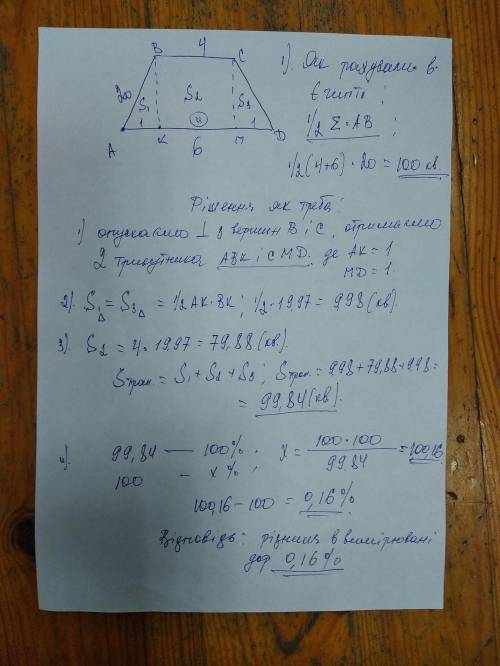 B 4 C
20
S₁ S₂ S₃
1 4 1
A K 6 M D
1). Як рахували в
Египті;
1/2 Σ · AB ;
1/2 (4+6) · 20 = 100 кв.
Рішення як треба:
1) опускаємо ⊥ з вершин B і C, отримаємо
2 трикутника ABK і CMD, де AK = 1
MD = 1.
2). S₁△ = S₃△ = 1/2 AK · BK ; 1/2 · 19,97 = 9,98 (кв).
3). S₂ = 4 · 19,97 = 79,88 (кв.)
Sтрап. = S₁ + S₂ + S₃ ; Sтрап. = 9,98 + 79,88 + 9,98 =
= 99,84 (кв).
4). 99,84 — 100% ; X = 100·100 / 99,84 = 100,16
100 — x%
100,16 - 100 = 0,16%
Відповідь: різниця в вимірювані
дор 0,16%